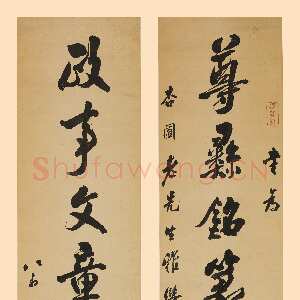 尊彝銘篆
書為
杏園老先生雅鑒
政事文章
八分
ShufaWang.CN